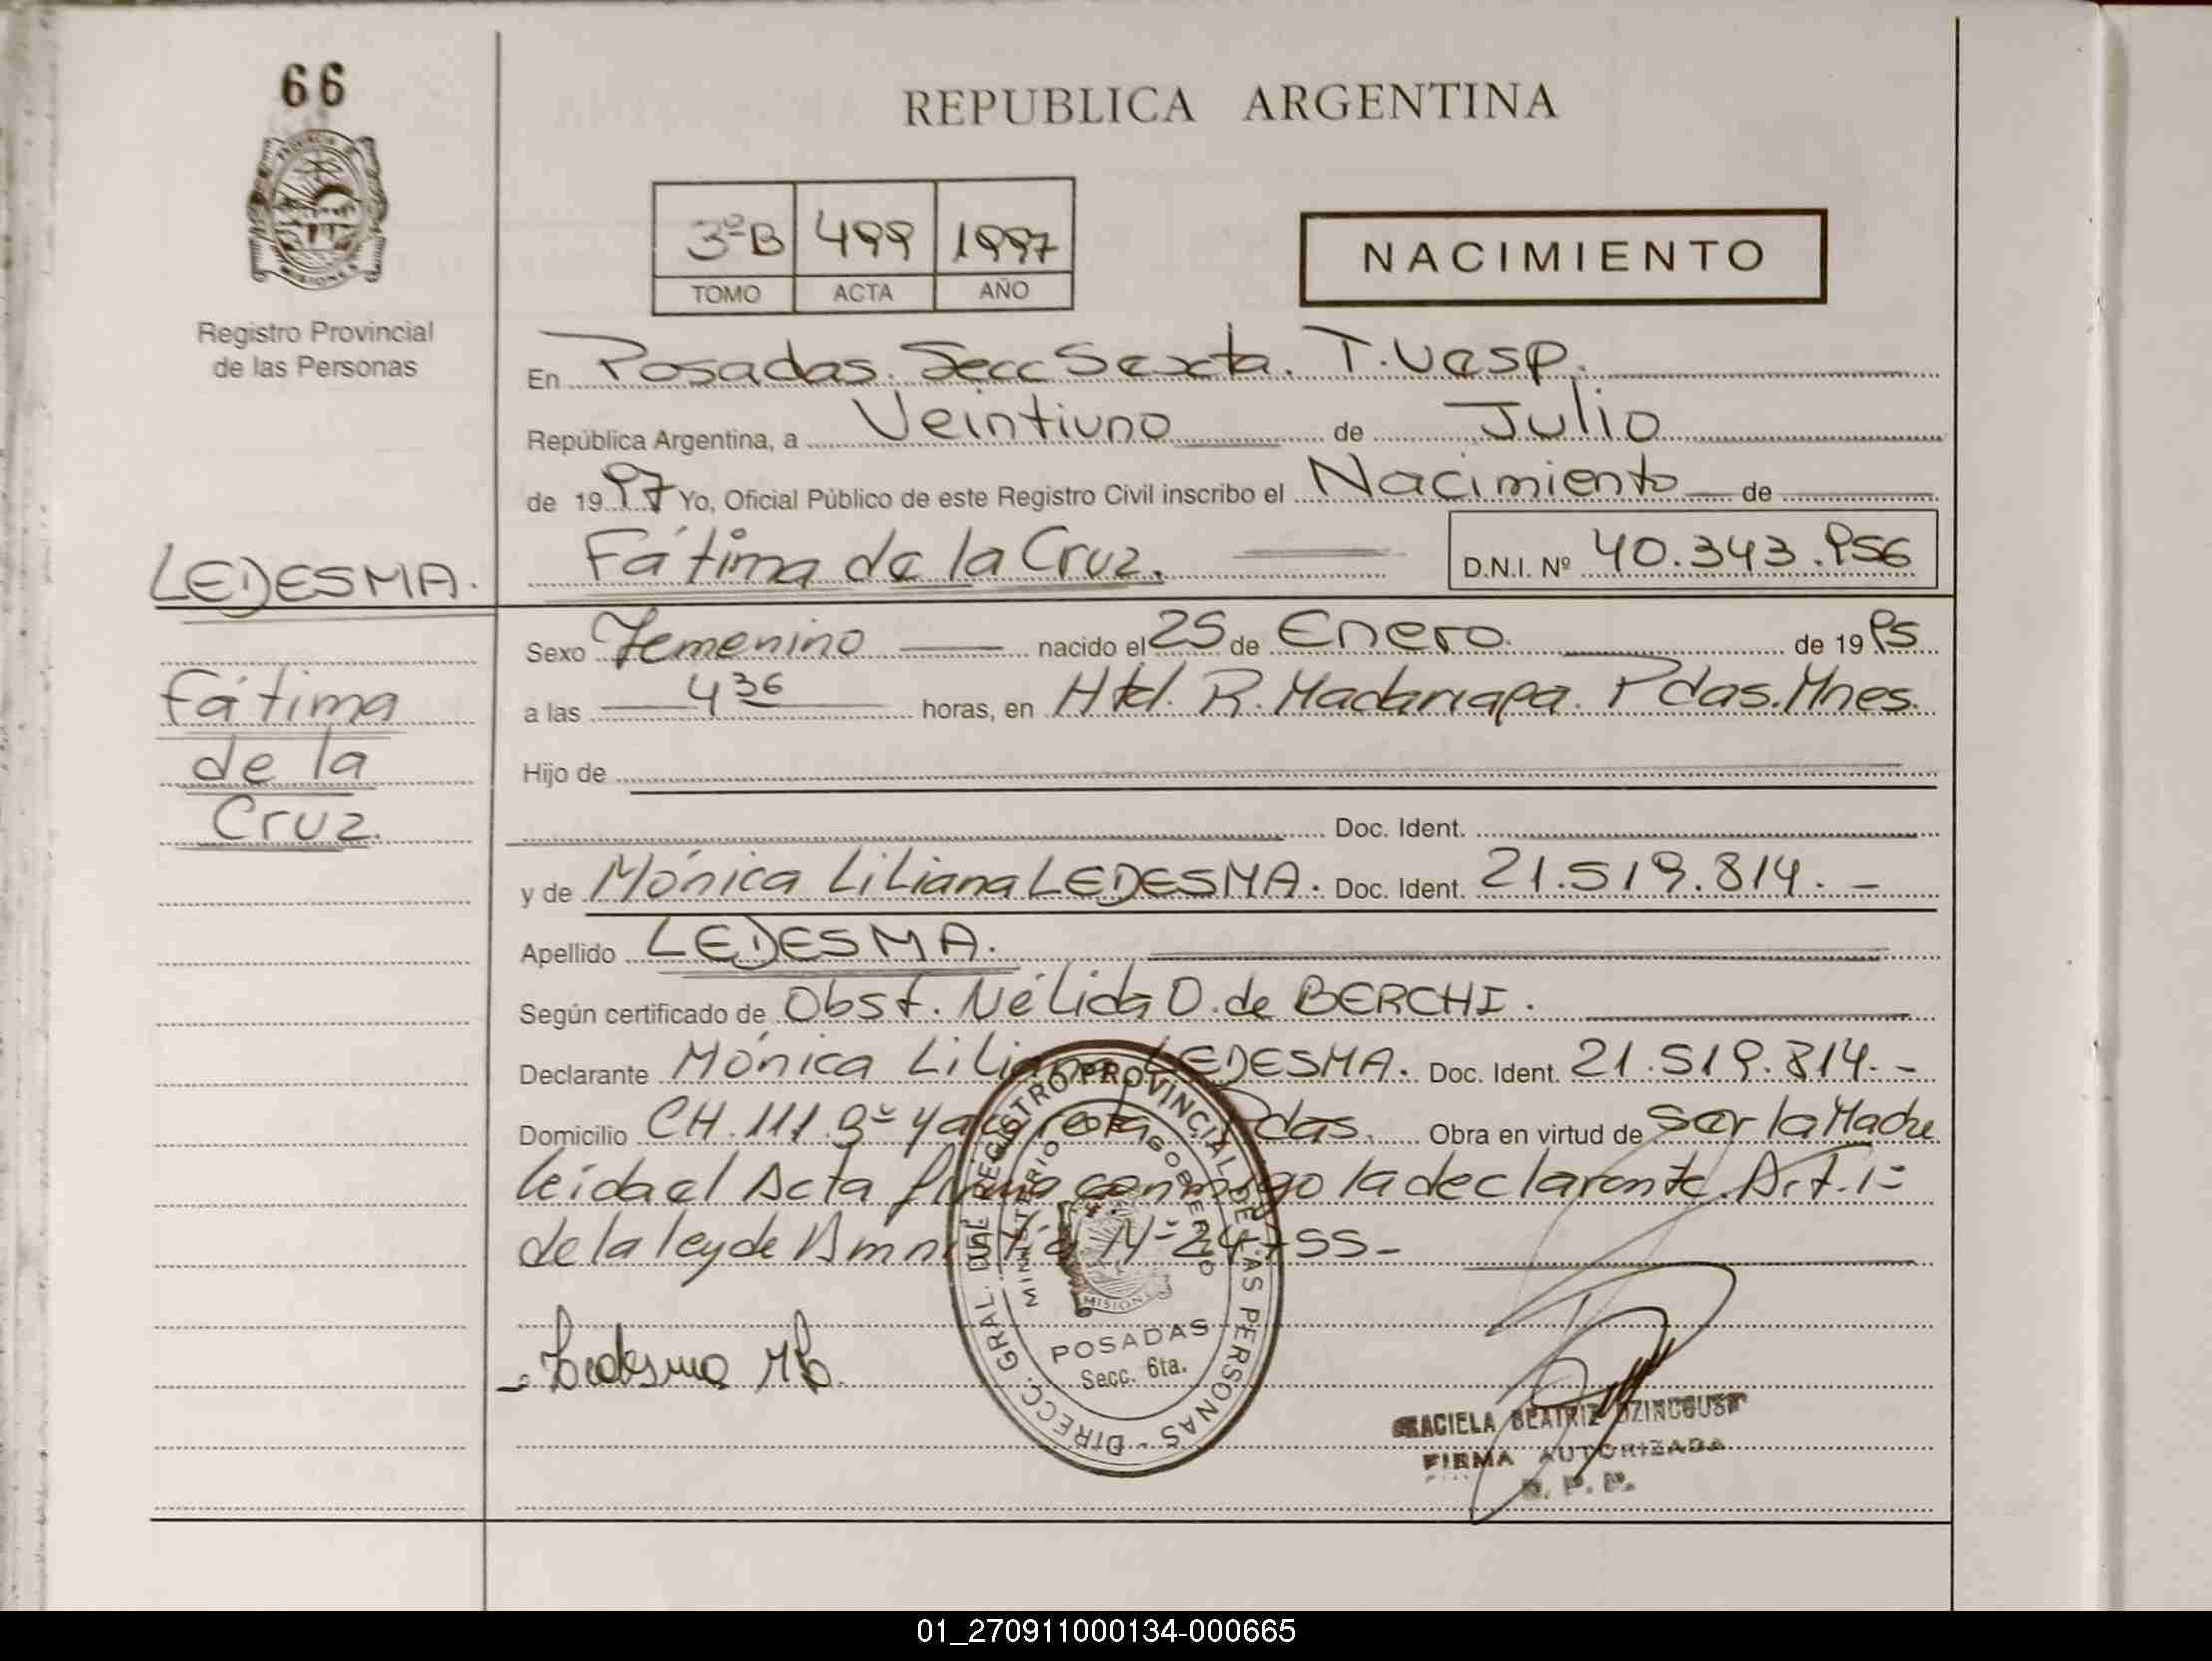 66
REPUBLICA ARGENTINA
PROVINCIA DE
MISIONES
Registro Provincial
de las Personas
3ºB 499 1997
TOMO ACTA AÑO
NACIMIENTO
En Posadas. Secc Sexta. T. Vesp.
República Argentina, a Veintiuno de Julio
de 1997 Yo, Oficial Público de este Registro Civil inscribo el Nacimiento de
Fátima de la Cruz. D.N.I. Nº 40.343.956
LEDESMA.
Fátima
de la
Cruz.
Sexo Femenino nacido el 25 de Enero. de 1995
a las 4 36 horas, en Htal. R. Madariaga. Pdas. Mnes.
Hijo de
Doc. Ident.
y de Mónica Liliana LEDESMA. Doc. Ident. 21.519.814. -
Apellido LEDESMA.
Según certificado de Obst. Nélida O. de BERCHI.
Declarante Mónica Liliana LEDESMA. Doc. Ident. 21.519.814. -
Domicilio CH. 111 Pdas. Obra en virtud de ser la Madre
leida el Acta firma conmigo la declarante. Art. 1º
de la ley de Amnistía Nº 24755-
Ledesma ML.
DIRECC. GRAL. DEL REGISTRO PROVINCIAL DE LAS PERSONAS -
MINISTERIO DE GOBIERNO
MISIONES
POSADAS
Secc. 6ta.
GRACIELA BEATRIZ
FIRMA AUTORIZADA
R. P. P.
01_270911000134-000665